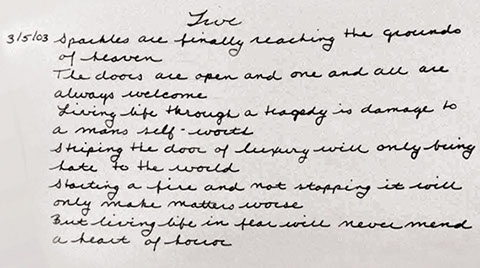 Five
3/5/03 Sparkles are finally reaching the grounds
of heaven
The doors are open and one and all are
always welcome
Living life through a tragedy is damage to
a mans self-worth
Striping the door of luxury will only being
hate to the world
Starting a fire and not stopping it will
only make matters worse
But living life in fear will never mend
a heart of horror